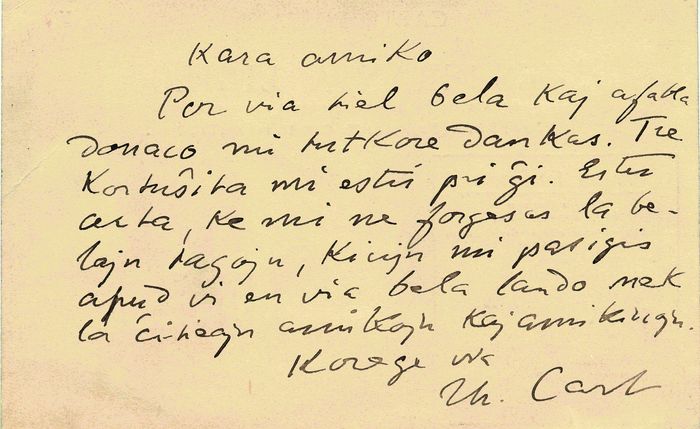 Kara amiko
Por via tiel bela kaj afabla
donaco mi tutkore dankas. Tre
kortuŝita mi estis pri ĝi. Estu
certa, ke mi ne forgesas la be-
lajn tagojn, kiujn mi pasigis
apud vi en via bela lando nek
la ĉi-tieajn amikojn kaj amikinojn.
Korege via
Th. Cart